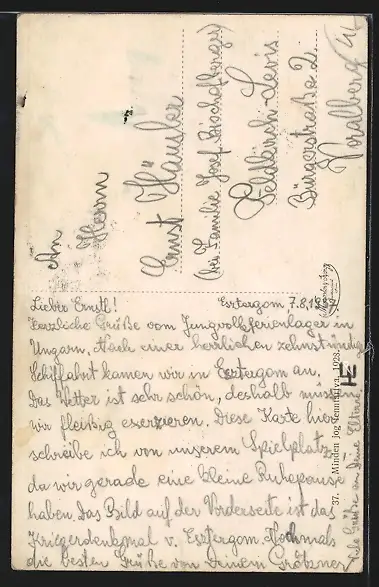 An
Herrn
Ernst Häusler
(bei Familie Josef Bischofberger)
Feldkirch-Levis
Bürgerstraße 2.
Voralberg
Esztergom 7.8.19
Lieber Ernstl!
Herzliche Grüße vom Jungvolkferienlager in
Ungarn. Nach einer herrlichen zehnstündigen
Schiffahrt kamen wir in Esztergom an.
Das Wetter ist sehr schön, deshalb müssen
wir fleißig exerzieren. Diese Karte hier
schreibe ich von unserem Spielplatz
da wir gerade eine kleine Ruhepause
haben. Das Bild auf der Vorderseite ist das
Kriegerdenkmal v. Esztergom. Nochmals
die besten Grüße von Deinem
Viele Grüße an Deine Eltern!
37. Minden jog fenntartva. 1028.